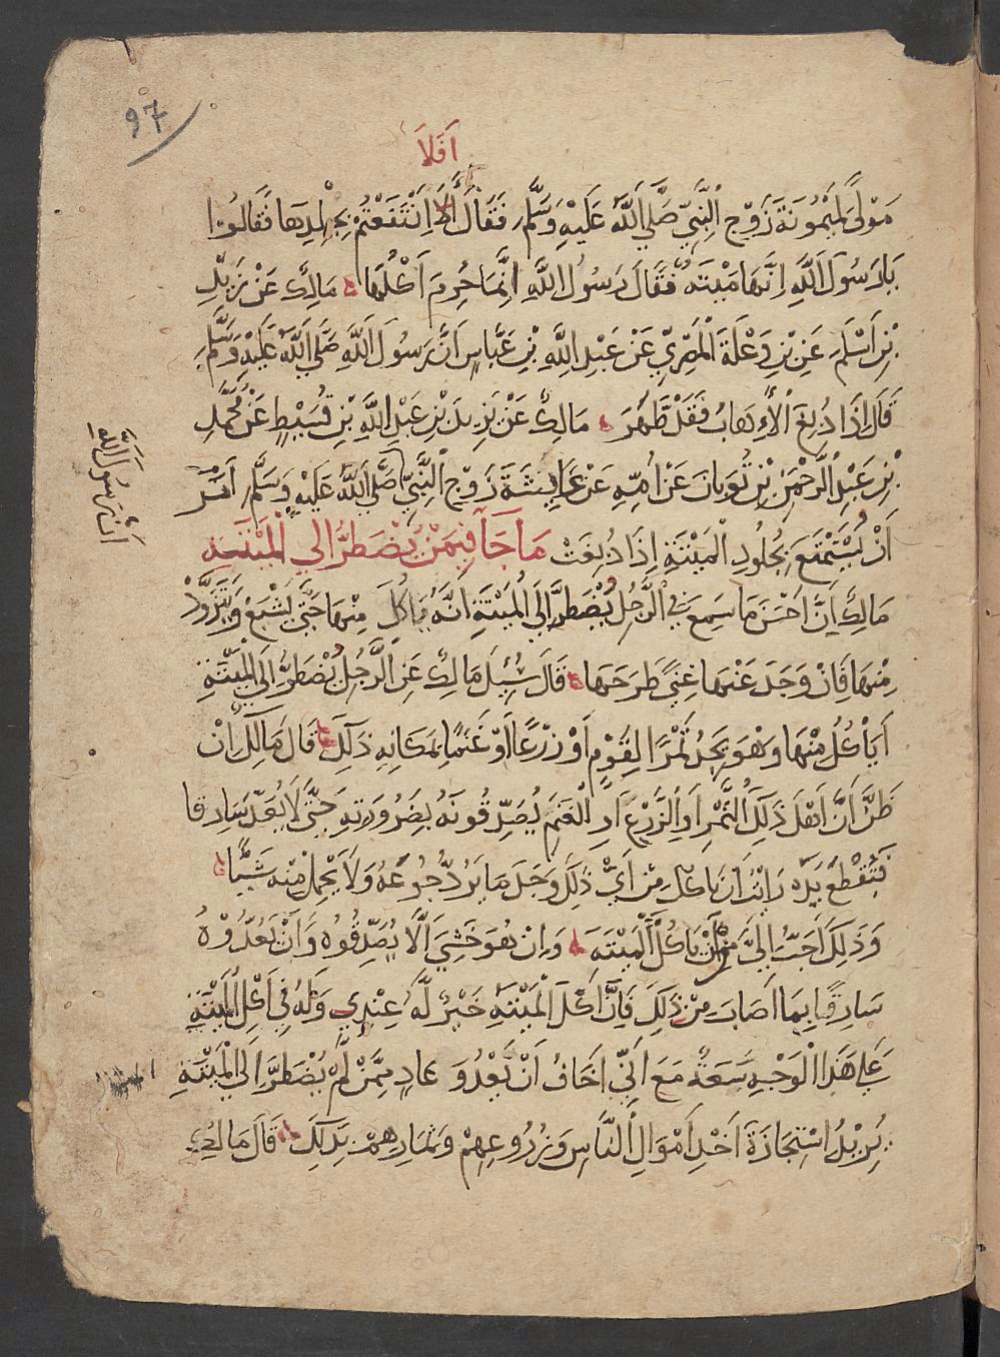 97
اَفَلاَ
مَوْلًى لِمَيْمُونَةَ زَوْجِ النَّبِيِّ صَلَّى اَللَّهُ عَلَيْهِ وَسَلَّمَ فَقَالَ أَلاَ اِنْتَفَعْتُمْ بِجِلْدِهَا فَقَالُوا
يَا رَسُولَ اَللَّهِ اِنَّهَا مَيْتَةٌ فَقَالَ رَسُولُ اللَّهِ اِنَّمَا حُرِمَ اَكْلُهَا مَالِكٌ عَنْ زَيْدِ
بْنِ اَسْلَمَ عَنِ بْنِ وَعْلَةَ الْمَصْرِيِّ عَنْ عَبْدِ اللَّهِ بْنِ عَبَّاسٍ اَنَّ رَسُولَ اَللَّهِ صَلَّى اَللَّهُ عَلَيْهِ وَسَلَّمَ
قَالَ اِذَا دُبِغَ الْاِهَابُ فَقَدْ طَهُرَ مَالِكٌ عَنْ يَزِيدَ بْنِ عَبْدِ اللَّهِ بْنِ قُسَيْطٍ عَنْ مُحَمَّدِ
بْنِ عَبْدِ الرَّحْمَنِ بْنِ ثُوبَانَ عَنْ اُمِّهِ عَنْ عَايِشَةَ زَوْجِ النَّبِيِّ صَلَّى اَللَّهُ عَلَيْهِ وَسَلَّمَ اَمَرَ
اَنَّ رَسُولَ اللَّهِ
اَنْ يُسْتَمْتَعَ بِجُلُودِ الْمَيْتَةِ اِذَا دُبِغَتْ مَا جَآ فِيمَنْ يُضْطَرُّ اِلى الْمَيْتَةِ
مَالِكٌ اَنَّ اَحْسَنَ مَا سَمِعَ فِي الرَّجُلِ يُضْطَرُّ اِلَى الْمَيْتَةِ اَنَّهُ يَاكُلُ مِنْهَا حَتَّى يَشْبَعَ وَيَتَزَوَّدُ
مِنْهَا فَاِنْ وَجَدَ عَنْهَا غِنًى طَرَحَهَا قَالَ سُئِلَ مَالِكٌ عَنِ الرَّجُلِ يُضْطَرُّ اِلَى الْمَيْتَةِ
اَيَاْكُلُ مِنْهَا وَهْوَ يَجِدُ ثَمْرًا لِقَوْمٍ اَوْ زَرْعًا اَوْ غَنَمًا بِمَكَانِهِ ذَلِكَ قَالَ مَالِكٌ اِنْ
ظَنَّ اَنَّ اَهْلَ ذَلِكَ الثَّمْرِ اَوِ الزَّرْعِ اَوِ الْغَنَمِ يُصَدِّقُونَهُ بِضَرُورَتِهِ حَتَّى لَا يُعَدَّ سَارِقا
فَتُقْطَعَ يَدُه رَاَيْتُ اَنْ يَاكُلَ مِنْ اَيِّ ذَلِكَ وَجَدَ مَا يَرُدُّ جُوعَهُ وَلَا يَحْمِلُ مِنْهُ شَيْئًا
وَذَلِكَ اَحَبُّ اِلَيَّ مِنْ اَنْ يَاكُلَ الْمَيْتَةَ وَاِنْ هُوَ خَشِيَ اَلَّا يُصَدِّقُوهُ وَاَنْ يَعُدُّوهُ
سَارِقًا بِمَا اَصَابَ مِنْ ذَلِكَ فَاِنَّ اَكْلَ الْمَيْتَةِ خَيْرٌ لَّهُ عِنْدِي وَلَهُ فِي اَكْلِ الْمَيْتَةِ
عَلَى هَذَا الْوَجْهِ سَعَةٌ مَعَ اَنِّي اَخَافُ اَنْ يَعْدُوَ عَادٍ مِمَّنْ لَّمْ يُضْطَرَّ اِلَى الْمَيْتَةِ
يُرِيدُ اسْتِجَازَةَ اَخْذِ اَمْوَالِ النَّاسِ وَزُرُوعِهِمْ وَثِمَارِهِمْ بِذَلِكَ قَالَ مَالِكٌ